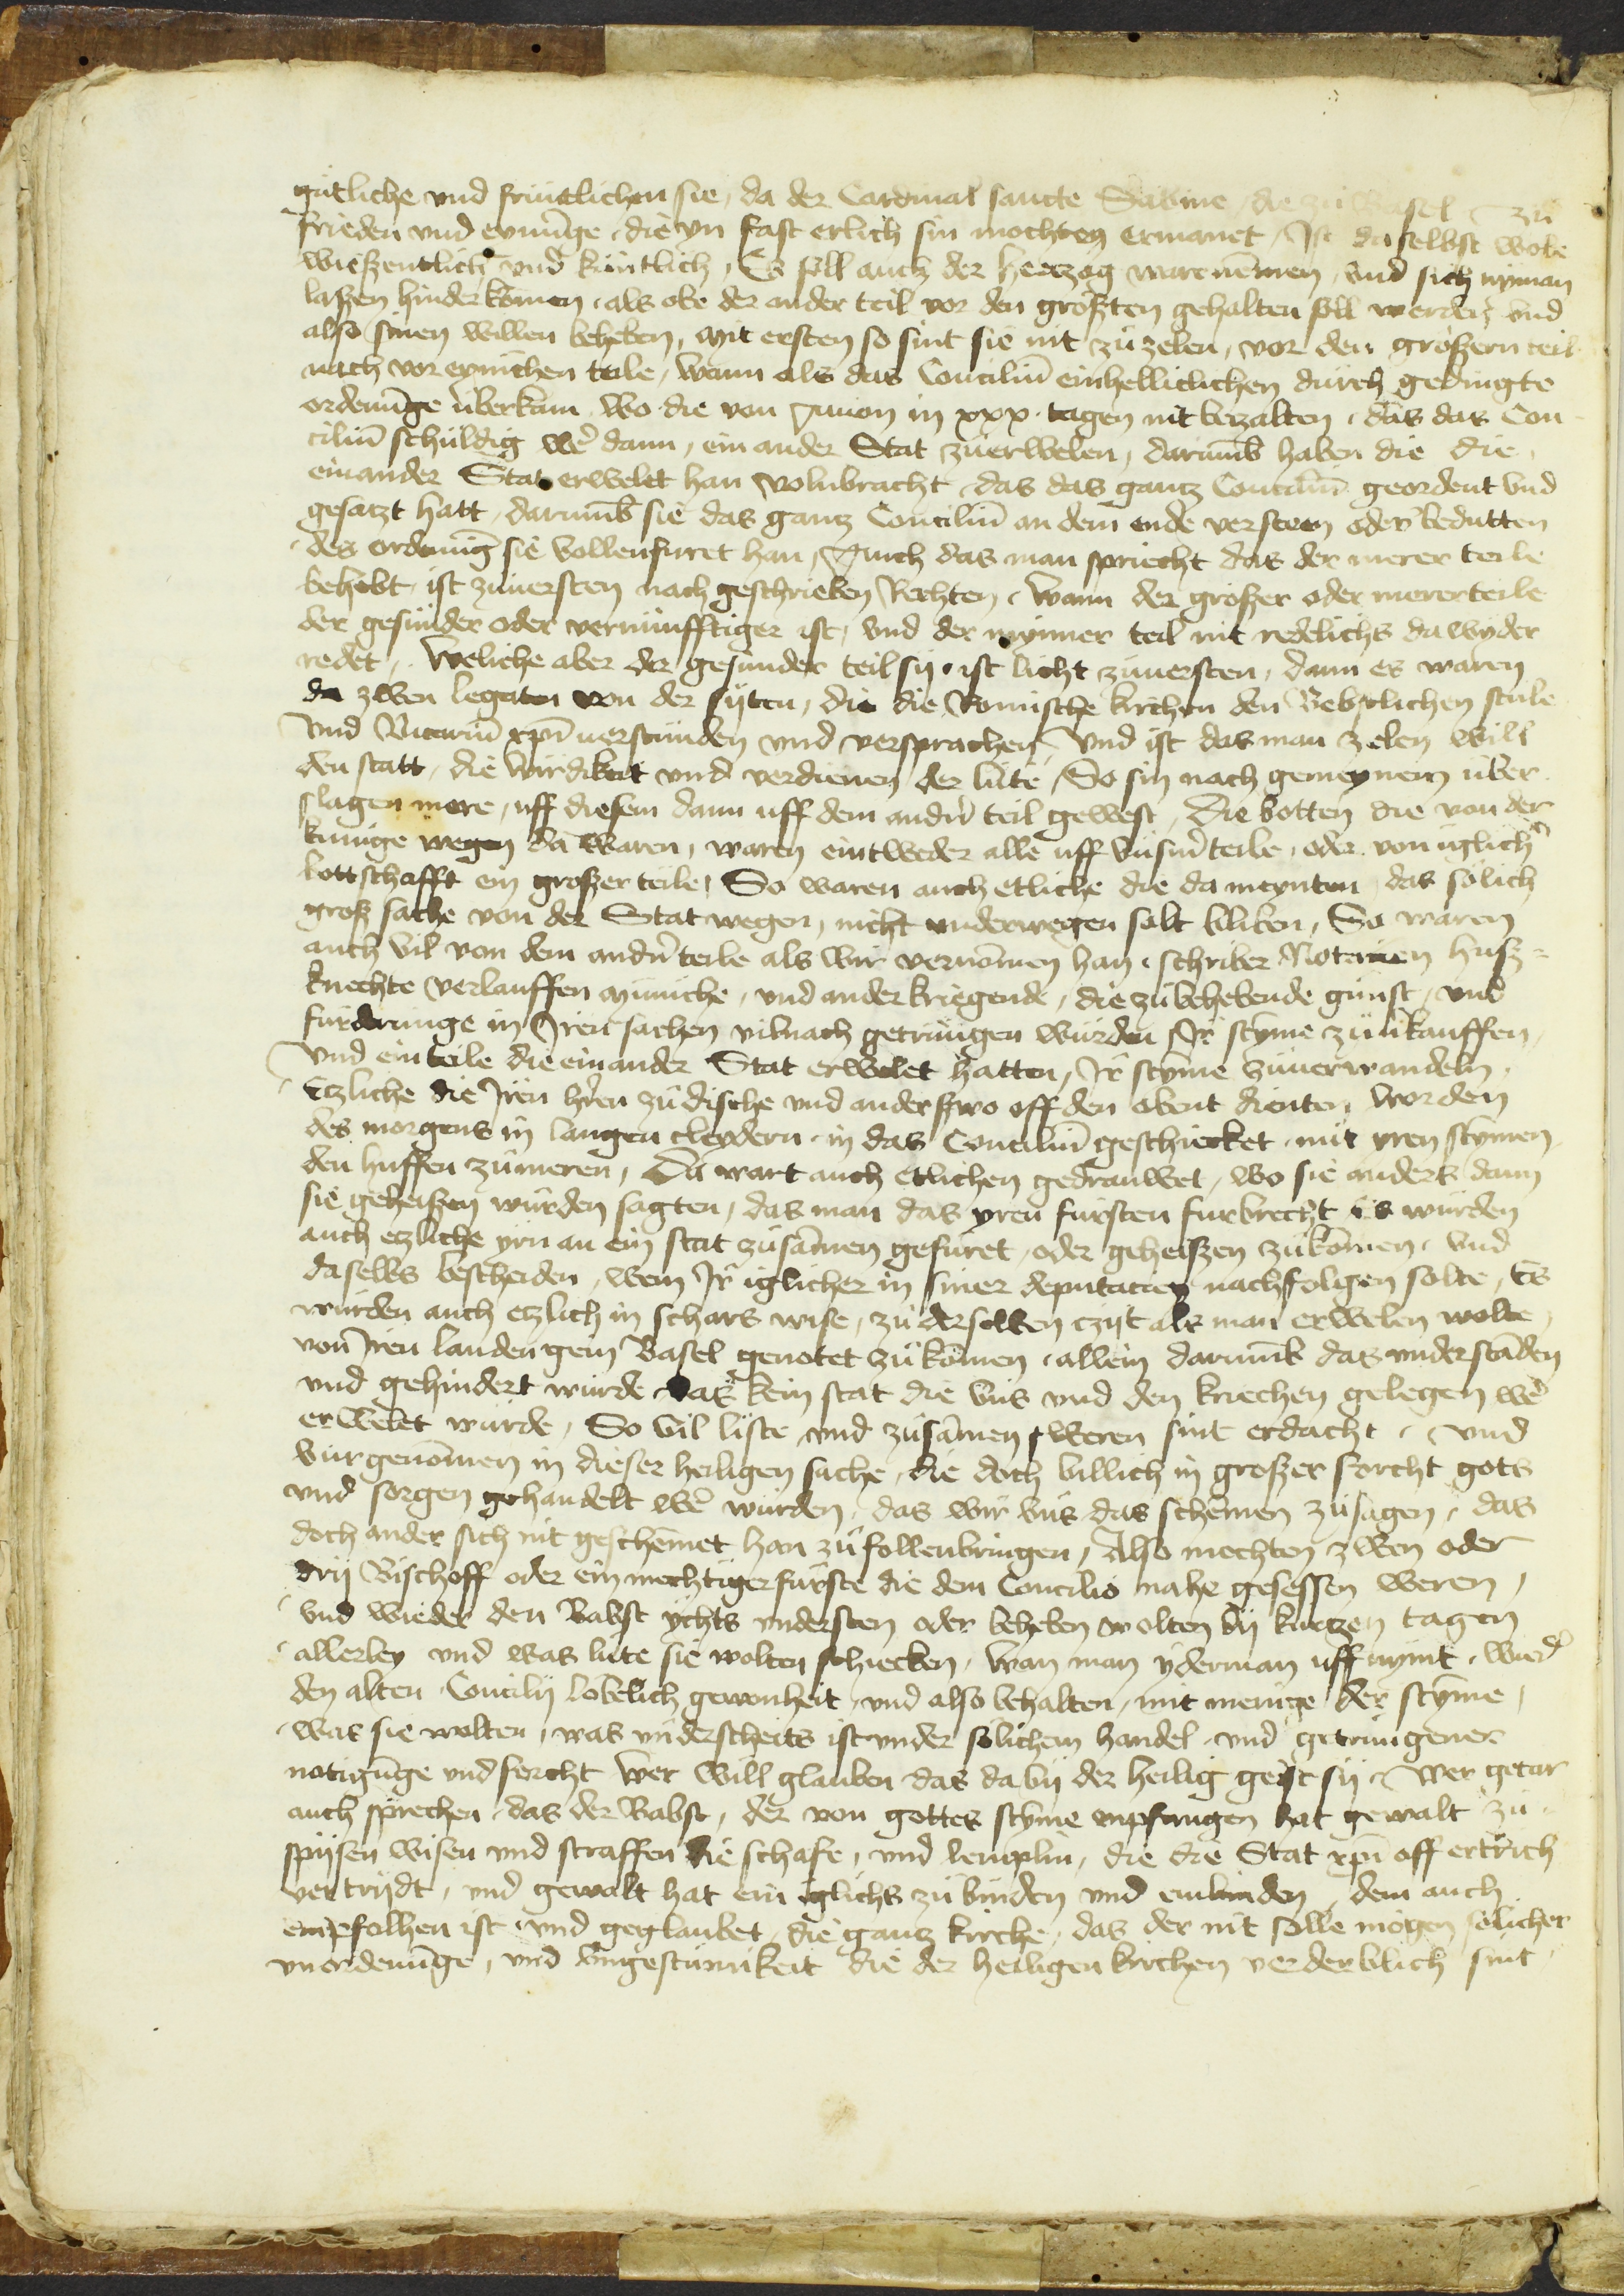 gutliche vnd fruntlichen sie, da der Cardinal sancte Sabine, die zu Basel zu
frieden vnd eynu̅ge, die yn fast erlich sin mochten ermanet, Ist daselbst wole
wießentlich vnd kuntlich, Es soll auch der hertzog ware nem̅en, vnd sich nyman
laßen hinderkom̅en, als obe der ander teil vor den großten gehalten soll werden vnd
also sinen willen beheben, mit ersten so sint sie nit zu zelen, vor den großern teil
nach vor eynichen teile, wann als das Conciliu̅ einhelliclichen durch gedingte
ordenu̅ge uberkam, wo die von Auion in xxx tagen nit bezalten, das das Con
ciliu̅ schuldig we̅ dann, ein ander Stat zuerwelen, daru̅mb haben die die
ein ander Stat erwelet han volnbracht, das das gantz Conciliu̅ geordent vnd
gesatzt hatt, daru̅mb sie das gantz Conciliu̅ an dem ende versteen oder bedutten
des ordenu̅g sie vollenfuret han, Auch das man spriecht das der merer teile
behebt, ist zuuersten nach geschrieben Rechten, Wann der großer oder merer teile
der gesunder oder vernunfftiger ist, vnd der mynner teil nit redelichs da wyder
redet, Weliche aber der gesunder teil sij, ist licht zuuersten, dann es waren
da zwen legaten von der sijten, die die Romische kirchen den Bebstlichen stule
vnd Vicariu̅ xp̅i uerstunden vnd versprachen, Vnd ist das man zelen will
den statt, die wirdikeit vnd verdienen der lute, So sin nach gemeynem uber
slagen mere, uff diesem dann uff dem andn̅ teil gewest, Die botten die von der
kunige wegen da waren, waren eintweder alle uff vnsm̅ teile, oder von iglich̅
bottschafft ein großer teile, So waren auch etliche die da meynten, das solich
groß sache von der Stat wegen, nicht underwegen solt bliben, So waren
auch vil von dem andn̅ teile als wir vernom̅en han, schriber Notarien huß=
knechte verlauffen mu̅niche, vnd ander kriegende, die zubehebende gunst, vnd
furderunge in Iren sachen vilnach getrungen wurden Ir̅ sty̅me zuuᵉkauffen,
Vnd ein teile die ein ander Stat erwelet hatten, Ir̅ sty̅me zuuerwandeln,
Etzliche die Iren hr̅en zu dische vnd anderswo off den obent dienten, worden
des morgens in langen cleydern in das Conciliu̅ geschiecket, mit yren stymen
den huffen zumeren, Da wart auch etlichen gedrauwet, wo sie anders dann
sie geheißen wurden sagten, das man das yren fursten furbrecht, Es wurden
auch etzliche yrn an ein stat zusam̅en gefuret, oder geheißen zukom̅en, vnd
daselbs bescheiden, wem Ir̅ iglicher in siner deputacien nachfolgen solte, Es
wurden auch etzlich in schars wise, zu derselben czijt als man erwelen wolte,
von Iren landen gein Basel genotet zukom̅en, allein daru̅mb das understa̅den
vnd gehindert wurde das kein stat die vns vnd den kriechen gelegen we̅
erwelet wurde, So vil liste vnd zusam̅en sweren sint erdacht, vnd
vur genom̅en in dieser heiligen sache, die doch billich in großer forcht gots
vnd sorgen gehandelt we̅ wurden, das wir vns das schemen zusagen, das
doch ander sich nit geschemet han zufollenbringen, Also mochten zwen oder
drij Bischoff oder ein mechtiger furste die dem Concilio nahe gesessen weren,
vnd wieder den Babst ychts understen oder beheben wolten bij kurtzen tagen
allerley vnd was lute sie wolten schiecken, wan man yderman uff nymt, wied̅
den alten Concilij lobelich gewonheit, vnd also behalten, mit menige der sty̅me,
was sie wolten, was underscheits ist under solichem handel, vnd getrungener
notigu̅ge vnd forcht Wer will glauben das da bij der heilig geist sij, Wer getar
auch sprechen, das der Babst, der von gottes sty̅me enpfangen hat gewalt zu
spijsen wisen vnd straffen die schafe, vnd lemplin, die die Stat xp̅i off ertrich
vertrijdt, vnd gewalt hat ein iglichs zu binden vnd enbinden, dem auch
empfolhen ist, vnd geglaubet, die gantz kirche, das der nit solle mogen solicher
vnordenu̅ge, vnd vngestumikeit die der heiligen kirchen verderblich sint